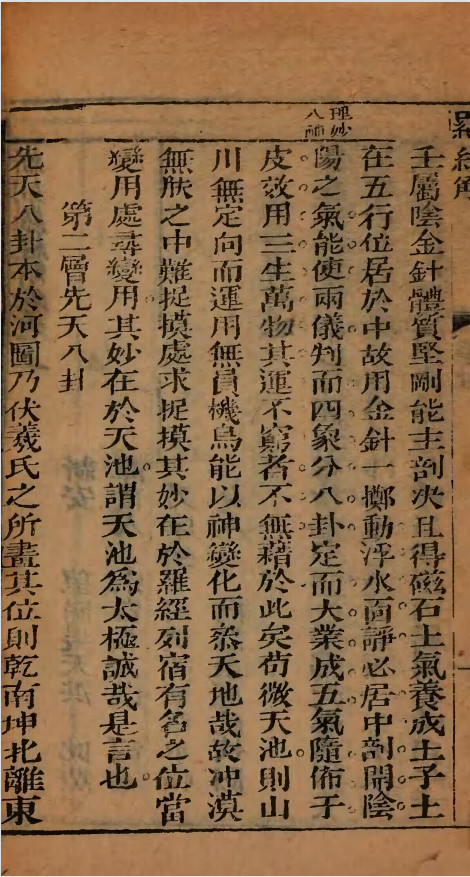 羅經解
理妙
八神
壬屬陰金針體質堅剛能主剖决且得磁石土氣養成土子土
在五行位居於中故用金針一擲動浮水面靜必居中剖開陰
陽之氣能使兩儀判而四象分八卦定而大業成五氣隨佈于
皮效用三生萬物其運不窮者不無藉於此矣苟微天池則山
川無定向而運用無員機烏能以神變化而叅天地哉故冲漠
無朕之中難捉摸處求捉摸其妙在於羅經列宿有名之位當
變用處尋變用其妙在於天池謂天池為太極誠哉是言也
第二層先天八卦
先天八卦本於河圖乃伏羲氏之所畫其位則乾南坤北離東